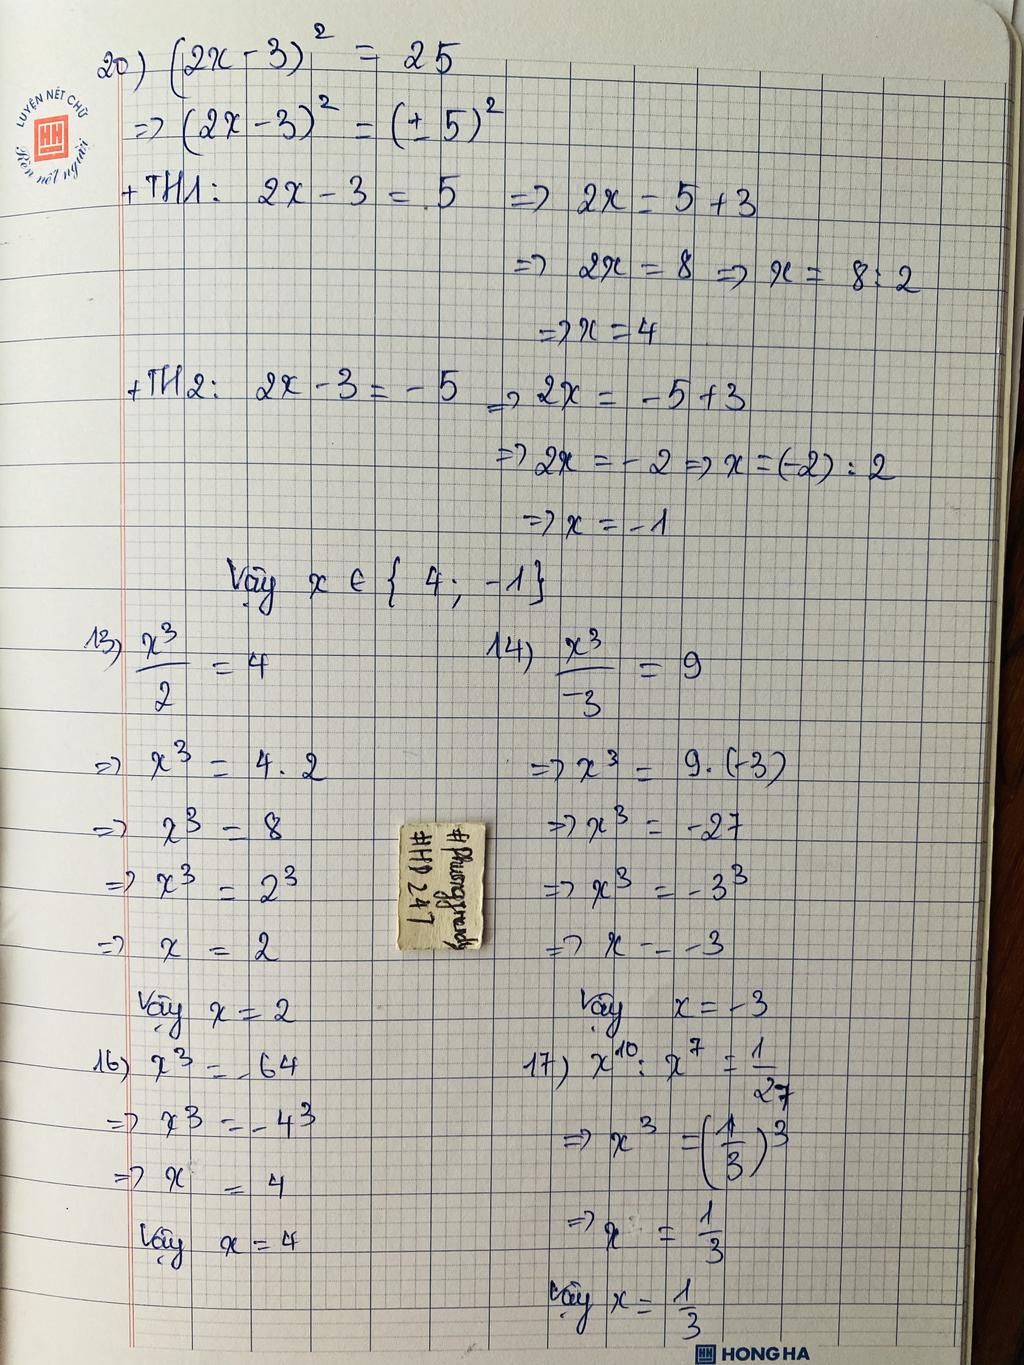 20) (2x - 3)² = 25
LUYỆN NÉT CHỮ
HH
Rèn nết người
=> (2x - 3)² = (± 5)²
+ TH1: 2x - 3 = 5 => 2x = 5 + 3
=> 2x = 8 => x = 8 : 2
=> x = 4
+ TH2: 2x - 3 = - 5 => 2x = - 5 + 3
=> 2x = - 2 => x = (-2) : 2
=> x = - 1
Vậy x ∈ { 4 ; -1}
13) x³/2 = 4
=> x³ = 4 . 2
=> x³ = 8
=> x³ = 2³
=> x = 2
Vậy x = 2
14) x³/-3 = 9
=> x³ = 9. (-3)
=> x³ = -27
=> x³ = -3³
=> x = -3
Vậy x = -3
#HD 247
16) x³ = -64
=> x³ = -4³
=> x = 4
Vậy x = 4
17) x¹⁰ : x⁷ = 1/27
=> x³ = (1/3)³
=> x = 1/3
Vậy x = 1/3
HH HONG HA